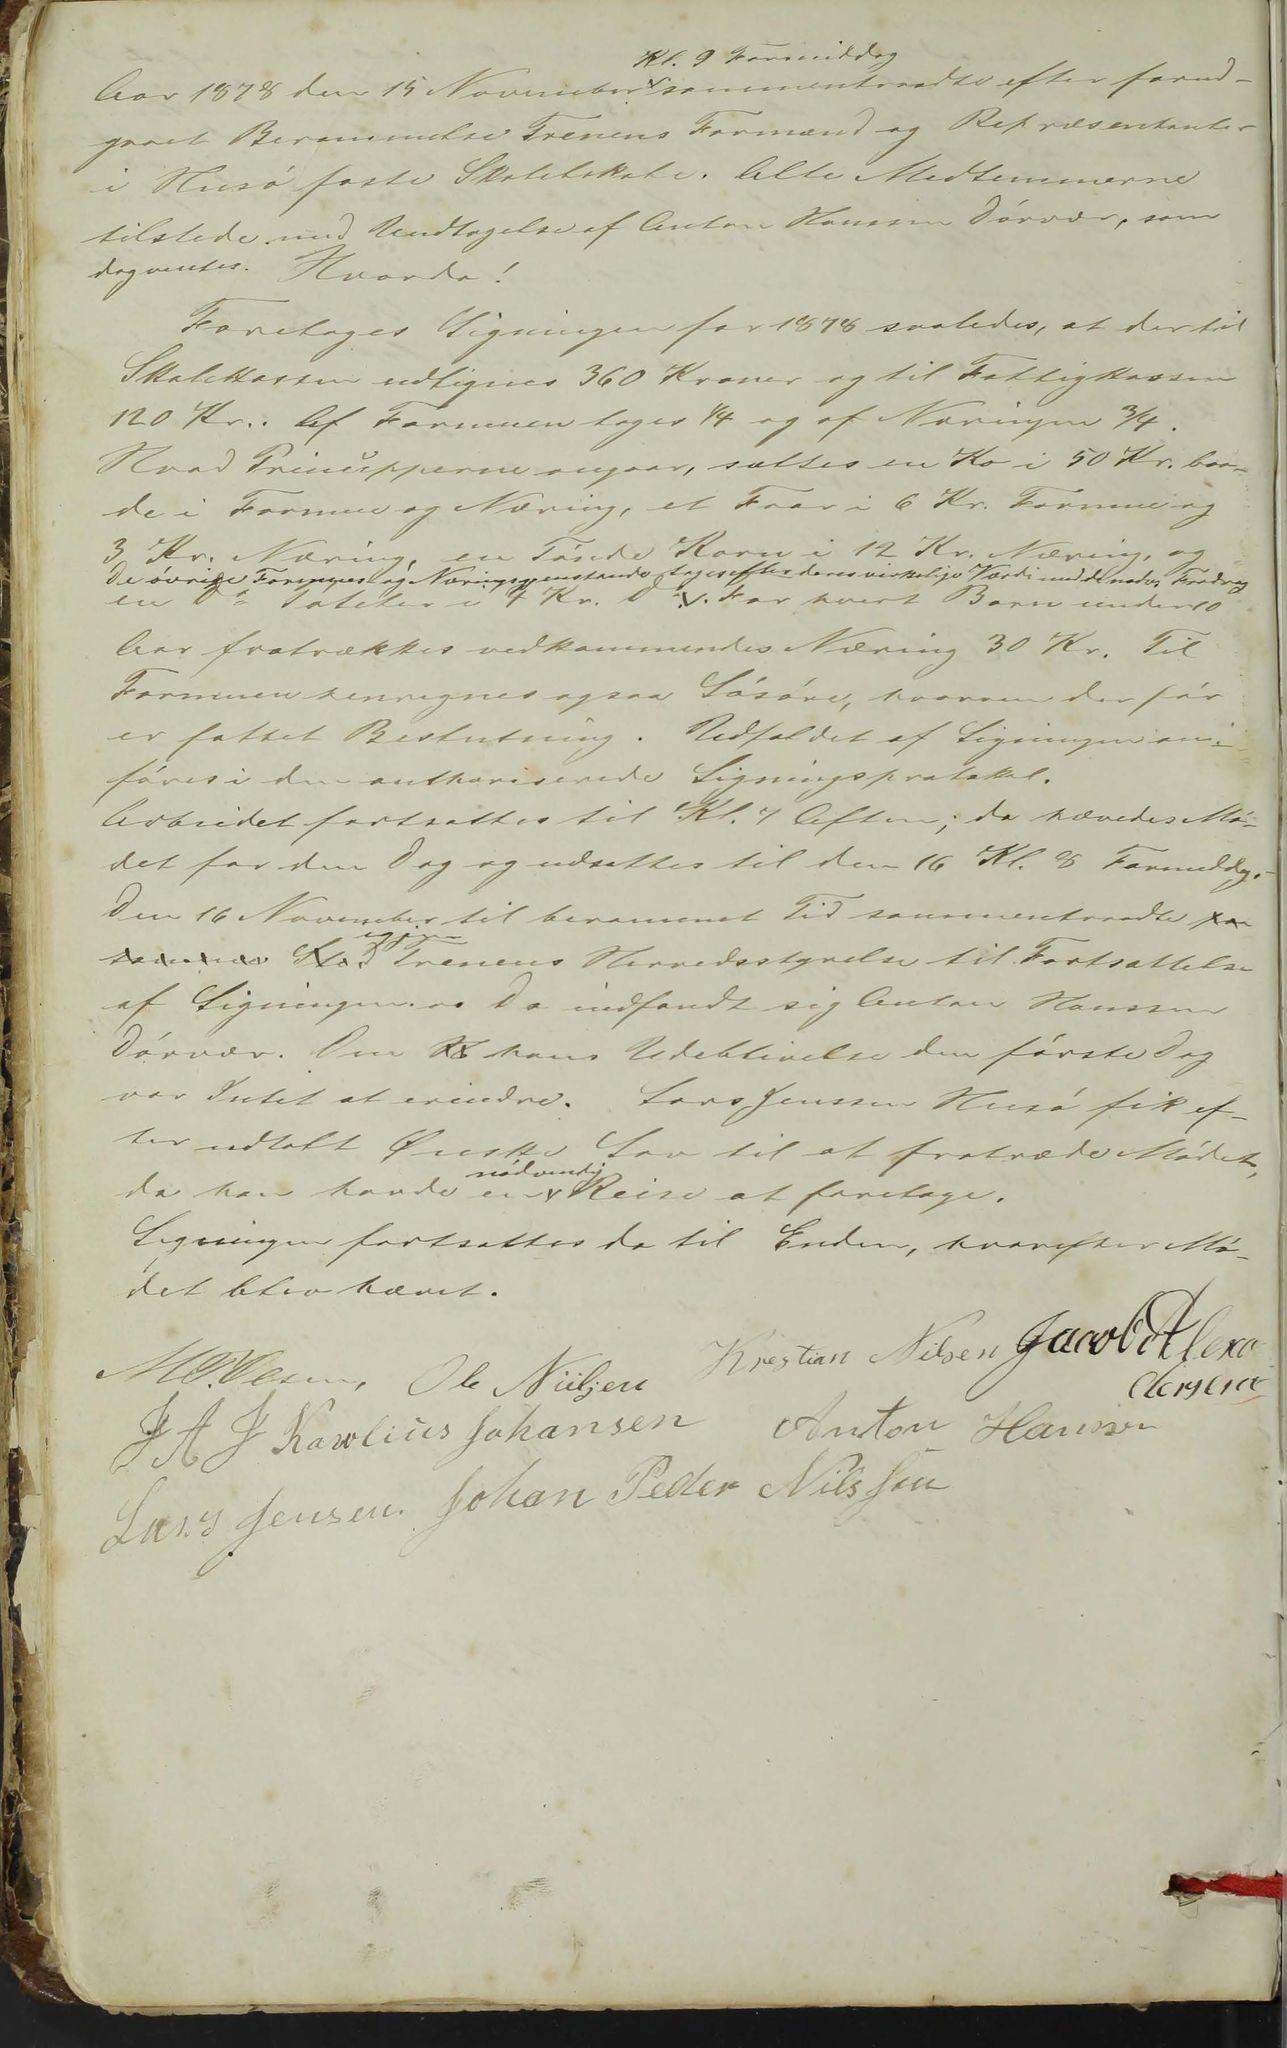 Kl. 9 Formiddag
Aar 1878 den 15 November sammentraadte efter forud-
gaaet Berammelse Trenens Formænd og Repræsentanter
i Husø faste Skolelokale. Alle Medlemmerne
tilstede med Undtagelse af Anton Hanssen Dørvær, som
dog ventes. Hvorda!
Foretoges Ligningen for 1878 saaledes, at der til
Skolekassen udlignes 360 Kroner og til Fattigkassen
120 Kr.. Af Formuen tages 1/4 og af Næringen 3/4.
Hvad Princupperne angaar, sættes en Ko i 50 Kr. baa-
de i Formue og Næring, et Faar i 6 Kr. Formue og
3 Kr. Næring, en Tønde Korn i 12 Kr. Næring, og
De øvrige Formues og Næringsgjenstande tages efter deres virkelige Værdi med de nødv. Fradrag
en Do Poteter i 4 Kr. Do. For hvert Barn under 10
Aar fratrækkes vedkommendes Næring 30 Kr. Til
Formuen henregnes ogsaa Løsøre, hvorom der før
er fattet Beslutning. Udfaldet af Ligningen an-
føres i den authoriserede Ligningsprotokol.
Arbeidet fortsattes til Kl. 7 Aften; da hævedes Mø-
det for den Dag og udsattes til den 16 Kl. 8 Formiddg.
Den 16 November til berammet Tid sammentraadte paa
samme Sted igjen Trenens Herredsstyrelse til Fortsættelse
af Ligningen. Da indfandt sig Anton Hanssen
Dørvær. Om hans Udeblivelse den første Dag
var Intet at erindre. Lars Jenssen Husø fik ef-
ter udtalt Ønske Lov til at fratræde Mødet,
da han havde en nødvendig Reise at foretage.
Ligningen fortsattes da til Enden, hvorefter Mø-
det blev hævet.
Ole Niilsen Kristian Nilsen Jacob Alexa
dersen
J A J Karolius Johansen Anton Hanssen
Lars Jensen. Johan Peder Nilssen